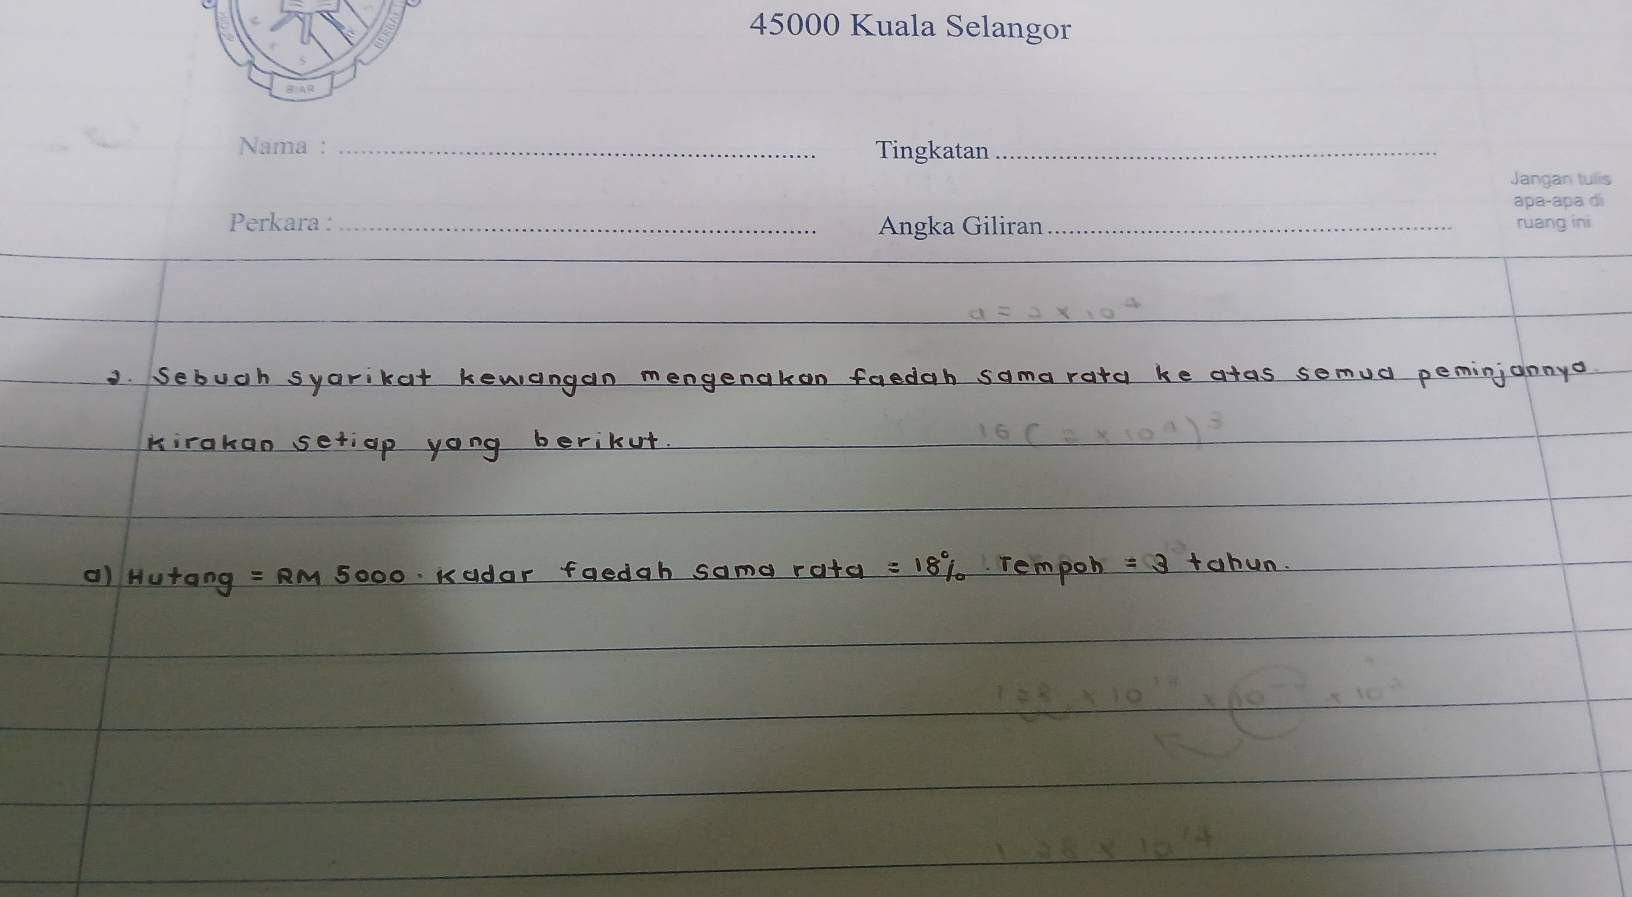 45000 Kuala Selangor
BIAR
Nama : ........................
Tingkatan ........................
Jangan tulis
apa-apa di
ruang ini
Perkara : ........................
Angka Giliran ........................
a = 2 x 10⁴
2. Sebuah syarikat kewangan mengenakan faedah sama rata ke atas semua peminjannya.
Kirakan setiap yang berikut.
16 ( 2 x 10⁴)³
a) Hutang = RM 5000. Kadar faedah sama rata = 18%. Tempoh = 3 tahun.
128 x 10¹²
1 28 x 10¹⁴